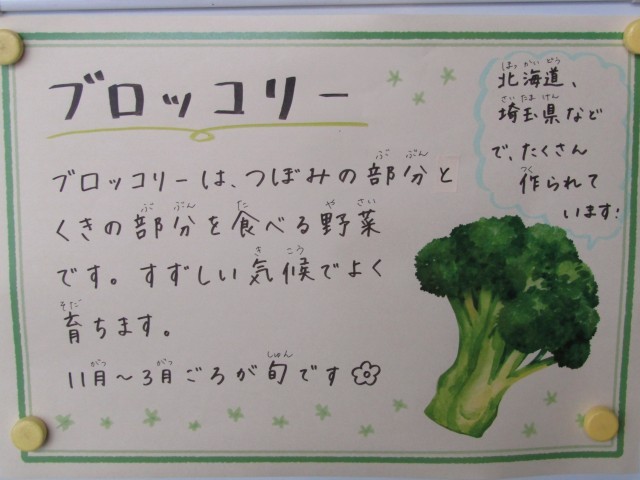 ブロッコリー
ブロッコリーは、つぼみの部分と
くきの部分を食べる野菜
です。すずしい気候でよく
育ちます。
11月～3月ごろが旬です
北海道、
埼玉県など
で、たくさん
作られて
います!